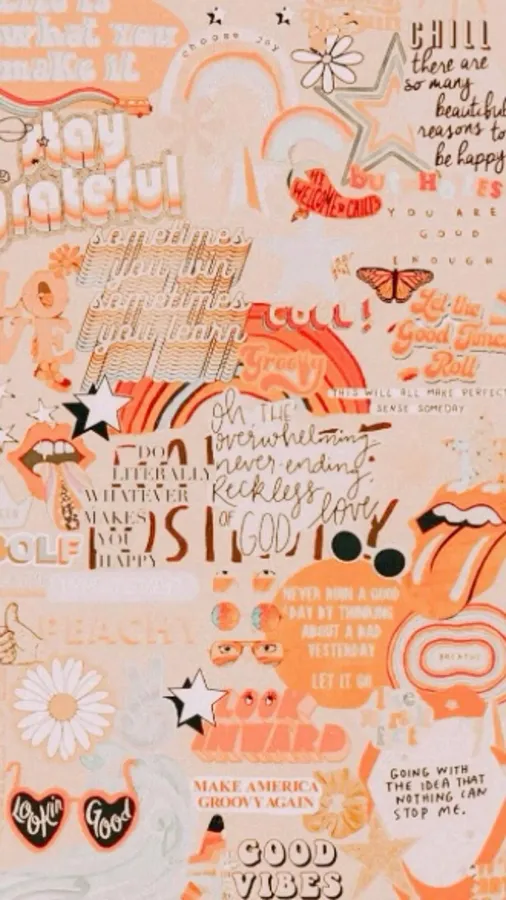 what you
make it
choose joy
CHILL
there are
so many
beautiful
reasons to
be happy
stay
grateful
YOU ARE
GOOD
ENOUGH
sometimes
you win
sometimes
you learn
LOVE
COOL!
Groovy
Let the
Good Times
Roll
THIS WILL ALL MAKE PERFECT
SENSE SOMEDAY
oh, THE
overwhelming
never-ending,
Reckless
OF GOD love
DO
LITERALLY
WHATEVER
MAKES
YOU
HAPPY
GOLF
NEVER RUIN A GOOD
DAY BY THINKING
ABOUT A BAD
YESTERDAY
LET IT GO
BREATHE
PEACHY
LOOK
INWARD
Lookin Good
MAKE AMERICA
GROOVY AGAIN
GOING WITH
THE IDEA THAT
NOTHING CAN
STOP ME.
GOOD
VIBES